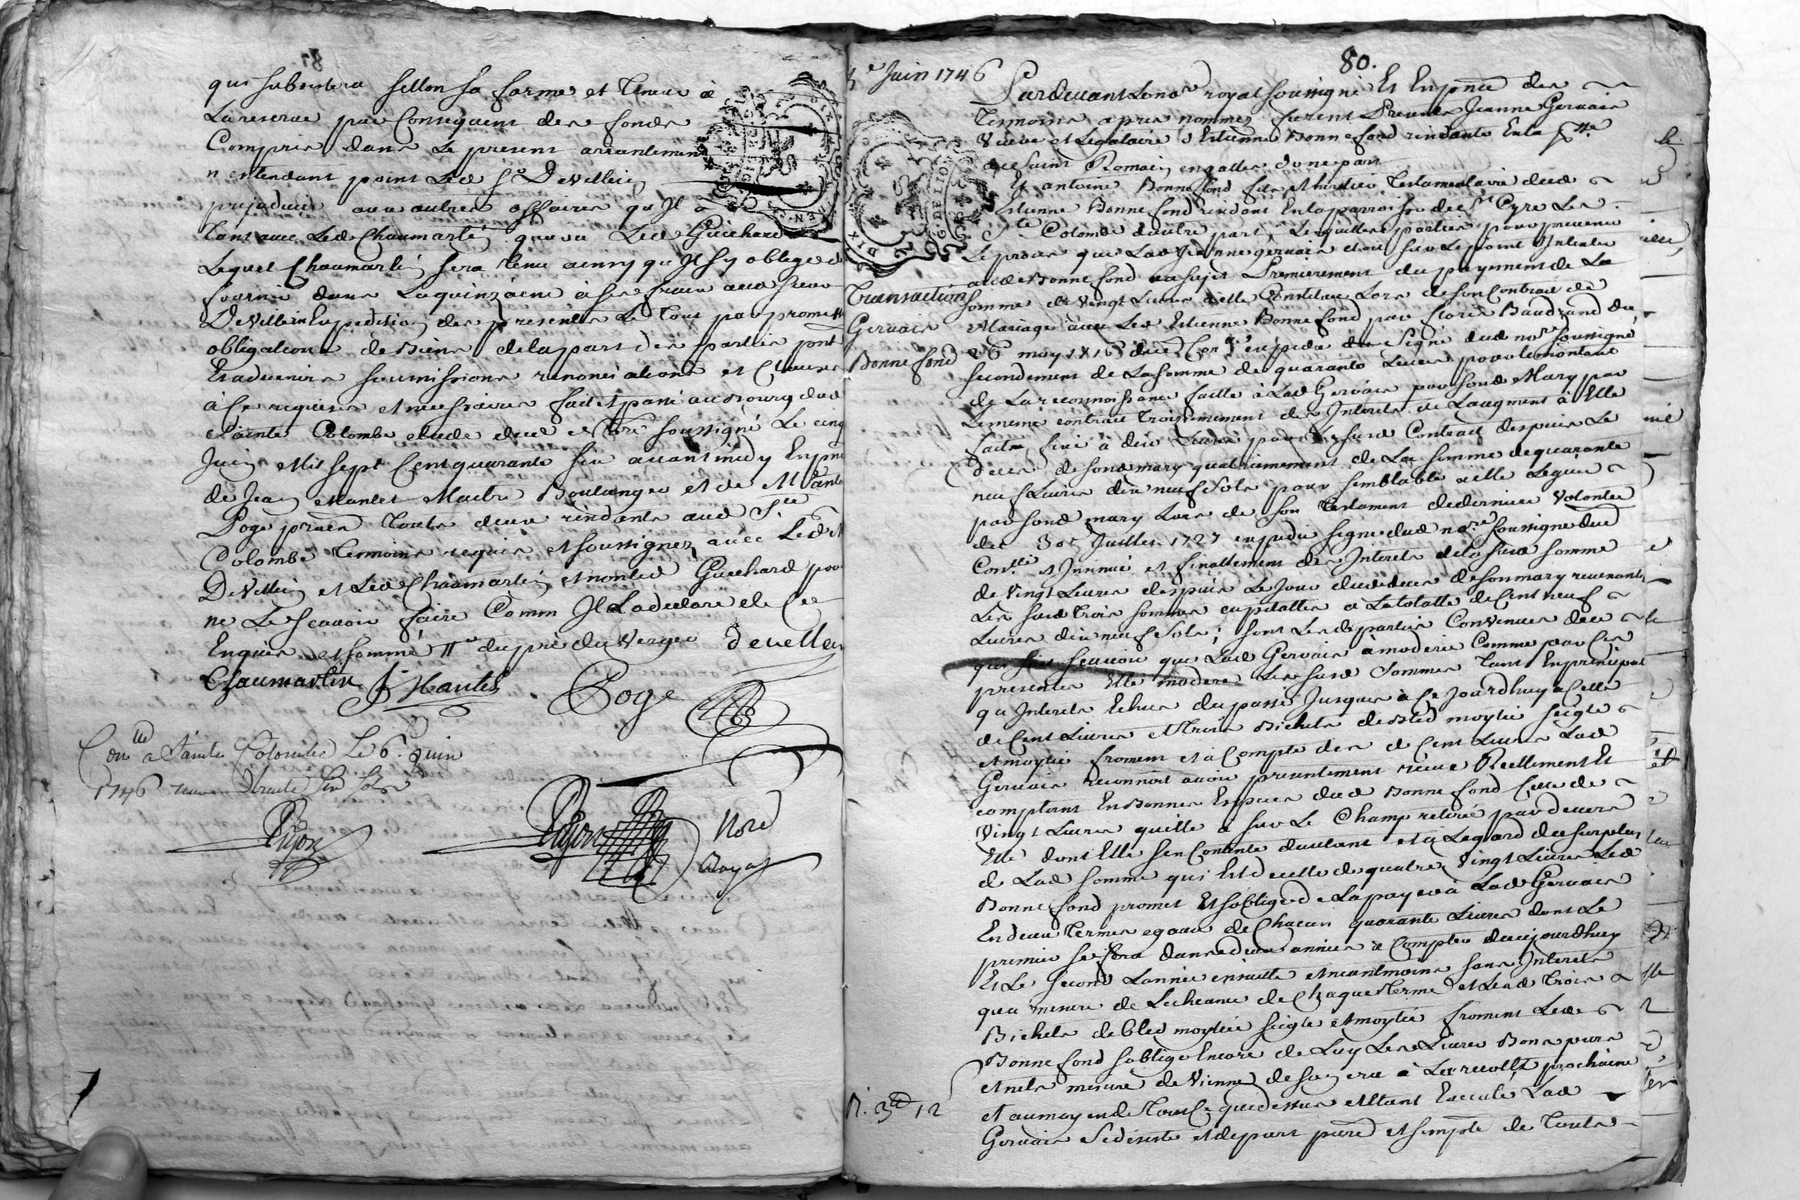 qui subsistera sellon sa forme et teneur a
La reserve par Consequent des fonds
Compris dans Le present arrantement
n entendant point Led Sr Devillein
prejudicier aux autres affaires qu Il a
tant avec Led Chaumartin que avec Led Guichard
Lequel Chaumartin sera tenu ainsy qu Il sy oblige de
fournir dans La quinzaine à ses fraix aud sieur
Devillein Expedition des presentes Le Tout par promesse
obligations de Biens de la part des parties pnt
Et advenirs soumissions renonciations et Clauses
à ce requises et necessaires fait et passé au Bourg dud
Sainte Colombe etude dud soussigné Le cinq
Juin Mil sept Cent quarante six avant midy En pnce
de Jean Hantet Maitre Boulanger et de Mr
Poge touts deux residents aud Ste
Colombe temoins requis et soussignez avec Led
Devillein et Led Chaumartin et non Led Guichard pour
ne Le scavoir faire Comm Il La declaré de Ce
Enquis et sommé du pré du Verger devillein
Chaumartin J Hantet Poge
Conllé a Sainte Colombe Le 6e Juin
1746 recu
Pijon Pijon Nore
Royal
80.
5e Juin 1746
DIX
G. DE LION
Transaction
Gervais
Bonnefond
Pardevant Le nore royal soussigné Et En pnce des
Temoins apres nommez furent Presents Jeanne Gervais
Veuve et Legataire d Estienne Bonnefond residante En la psse
de Saint Romain en galles d une part
Et antoine Bonnefond fils et heritier Testamentaire dud
Estienne Bonnefond residant En la parroisse de St Cyre Les
Ste Colombe d autre part, Lesquelles parties pour prevenir
Le procès que Lad Jeanne gervais etoit sur Le point Intenter
aud Bonnefond au sujet Premierement du payement de La
somme de vingt Livres a elle Constituée Lors de son Contrat de
Mariage avec Led Estienne Bonnefond par flory Baudrand du
26 may 1716 expedié signé dud nore soussigné
secondement de La somme de quarante Livres pour Le montant
de La reconnoissance faitte à Lad Gervais par fond Mary par
Le meme contrait Troisiemement des Interets de L augment à Elle
fait fixé à dix Livres par Le susd Contrat despuis Le
deces de fond mary quatriemement de La somme de quarante
neuf Livres dix neuf sols pour semblable a elle Leguée
par fond mary Lors de son Testament de derniere Volonté
du 30e Juillet 1727 expedié signé dud nore soussigné dud
Conllé et Insinué et finallement des Interets de la susd somme
de vingt Livres despuis Le Jour dud deces de son mary revenants
Les susd Trois sommes capitalles a La totalle de Cent neuf
Livres dix neuf sols; sont Lesd parties Convenues de ce
qui suit scavoir que Lad Gervais à moderé Comme par Ces
presentes Elle modere Les susd Sommes Tant En principal
qu Interets Echus du passé Jusques à Ce Jourdhuy a Celle
de Cent Livres et Trois Bichets de Bled moytié seigle
et moytié froment et à Compte des d Cent Livres Lad
Gervais reconnoit avoir presentement receu Reellement Et
comptant En Bonnes Especes dud Bonnefond Celle de
Vingt Livres qu elle a sur Le Champ retirée par devers
Elle dont Elle se Contente d autant et à L egard du surplus
de Lad Somme qui Est de celle de quatre Vingt Livres Led
Bonnefond promet Et s oblige de La payer à Lad Gervais
En deux Termes egaux de Chacun quarante Livres dont Le
premier se fera dans deux années a Compter d aujourdhuy
Et Le second L année ensuitte et neantmoins sans Interets
qu a mesure de L echeance de Chaque Terme et Lesd Trois
Bichets de bled moytié seigle et moytié froment Led
Bonnefond s oblige Encore de Luy Les Livrer Bons purs
et nets mesure de Vienne à La recolte prochaine
et au moyen de Tout Ce que dessus Estant Executé Lad
Gervais se desiste et depart pure et simple de Touts